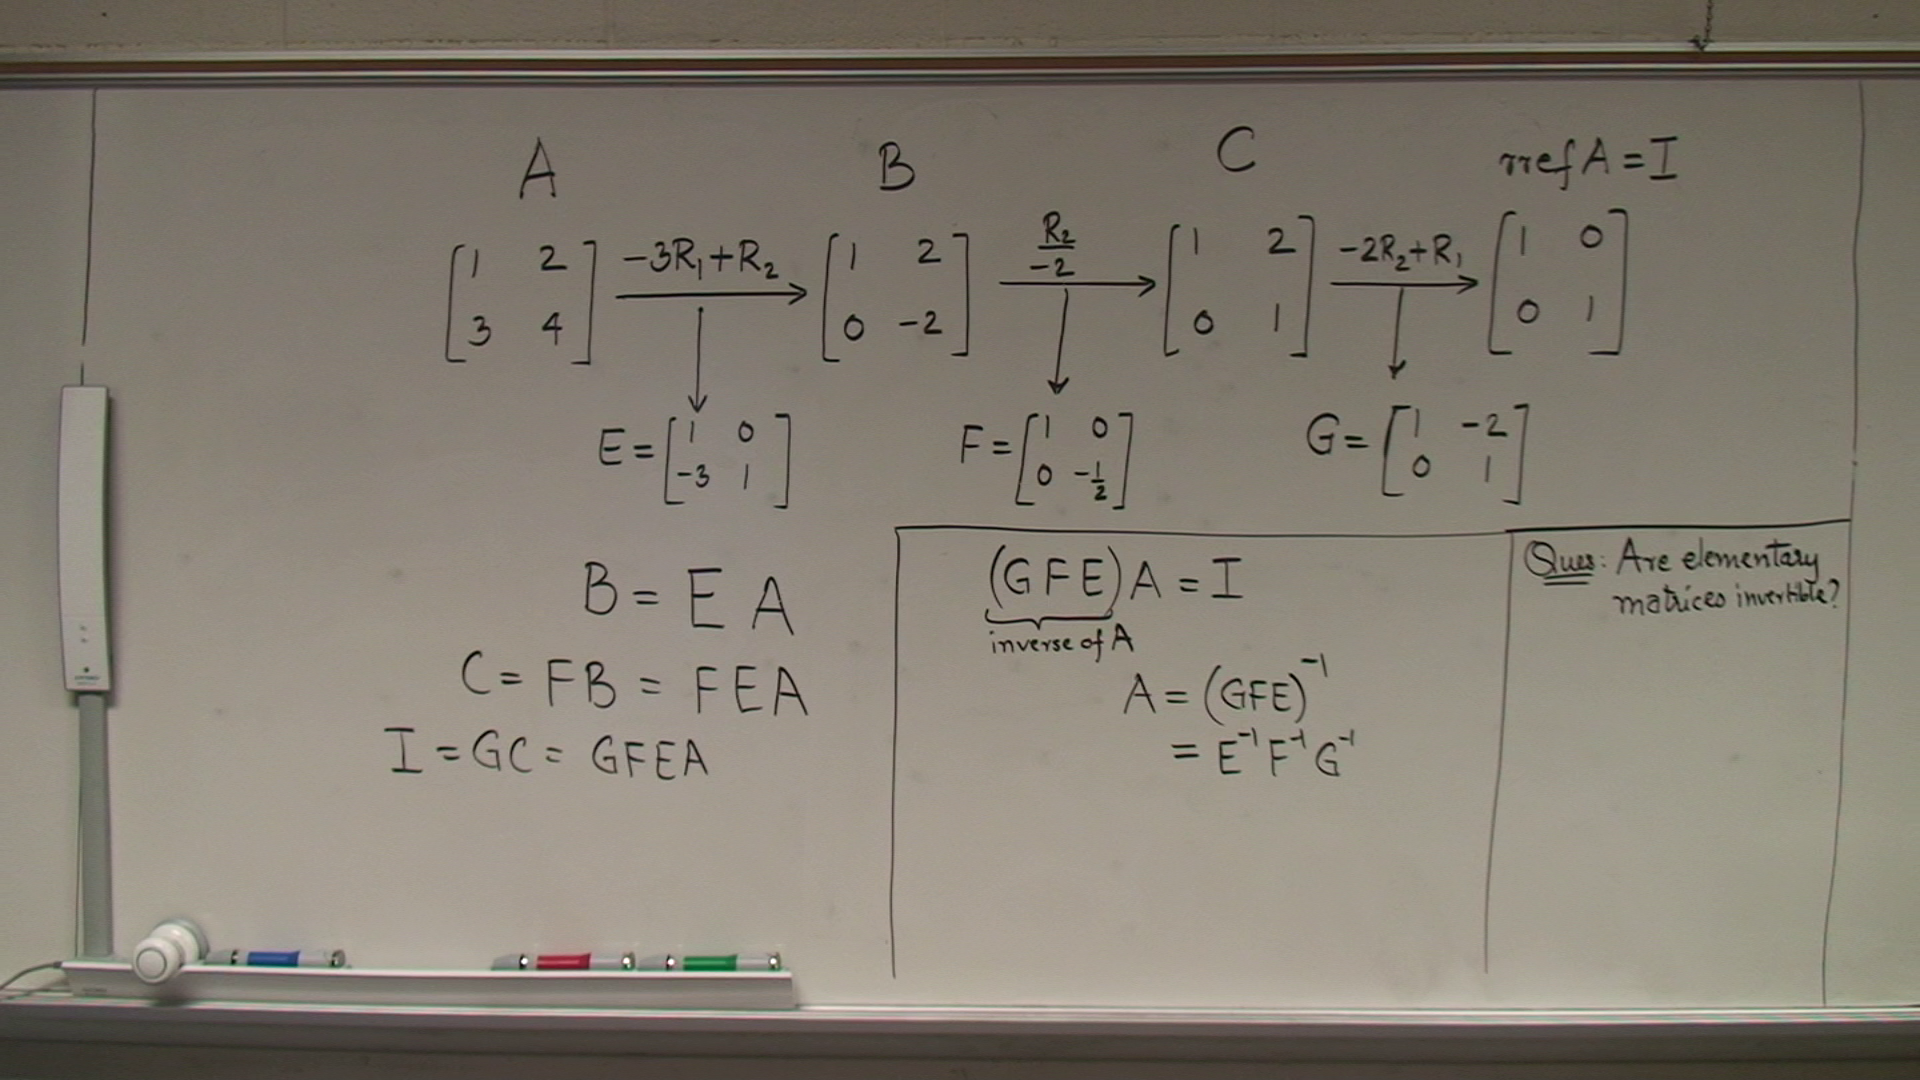 A B C rref A = I
[1 2; 3 4] -3R₁+R₂ → [1 2; 0 -2] R₂/-2 → [1 2; 0 1] -2R₂+R₁ → [1 0; 0 1]
E = [1 0; -3 1] F = [1 0; 0 -1/2] G = [1 -2; 0 1]
B = E A
C = FB = FEA
I = GC = GFEA
(GFE)A = I
inverse of A
A = (GFE)⁻¹
= E⁻¹F⁻¹G⁻¹
Ques: Are elementary
matrices invertible?